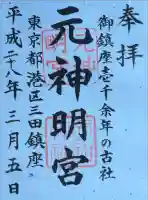 奉拝
御鎮座壱千余年の古社
元神明宮
東京都港区三田鎮座
平成二十八年三月五日